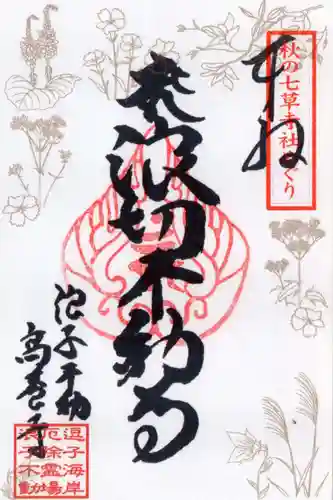 秋の七草寺社めぐり
奉拝
浪切不動尊
浪子不動
高養寺
逗子海岸
厄除霊場
浪子不動